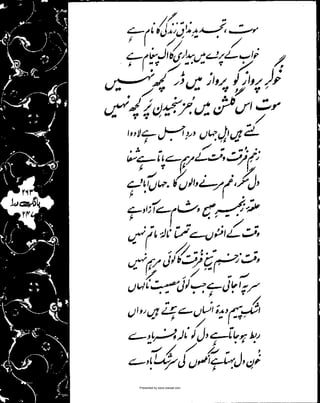 موت، تجدیدِ مذاقِ زندگی کا نام ہے
خواب کے پردے میں بیداری کا اک پیغام ہے
خوگرِ پرواز کو پرواز میں ڈر کچھ نہیں
موت اس گلشن میں جز سنجیدنِ پر کچھ نہیں
کہتے ہیں اہلِ جہاں دردِ اجل ہے لا دوا
زخمِ فرقت وقت کے مرہم سے پاتا ہے شفا
دل مگر، غم مرنے والوں کا جہاں آباد ہے
حلقۂ زنجیرِ صبح و شام سے آزاد ہے
وقت کے افسوں سے تھمتا نالۂ ماتم نہیں
وقت زخمِ تیغِ فرقت کا کوئی مرہم نہیں
سر پہ آجاتی ہے جب کوئی مصیبت ناگہاں
اشکِ پیہم دیدۂ انساں سے ہوتے ہیں رواں
ربط ہو جاتا ہے دل کو نالہ و فریاد سے
خونِ دل بہتا ہے آنکھوں کی سرشک آباد سے
۲۹۳
بانگ درا
۲۳۷
Presented by www.ziaraat.com